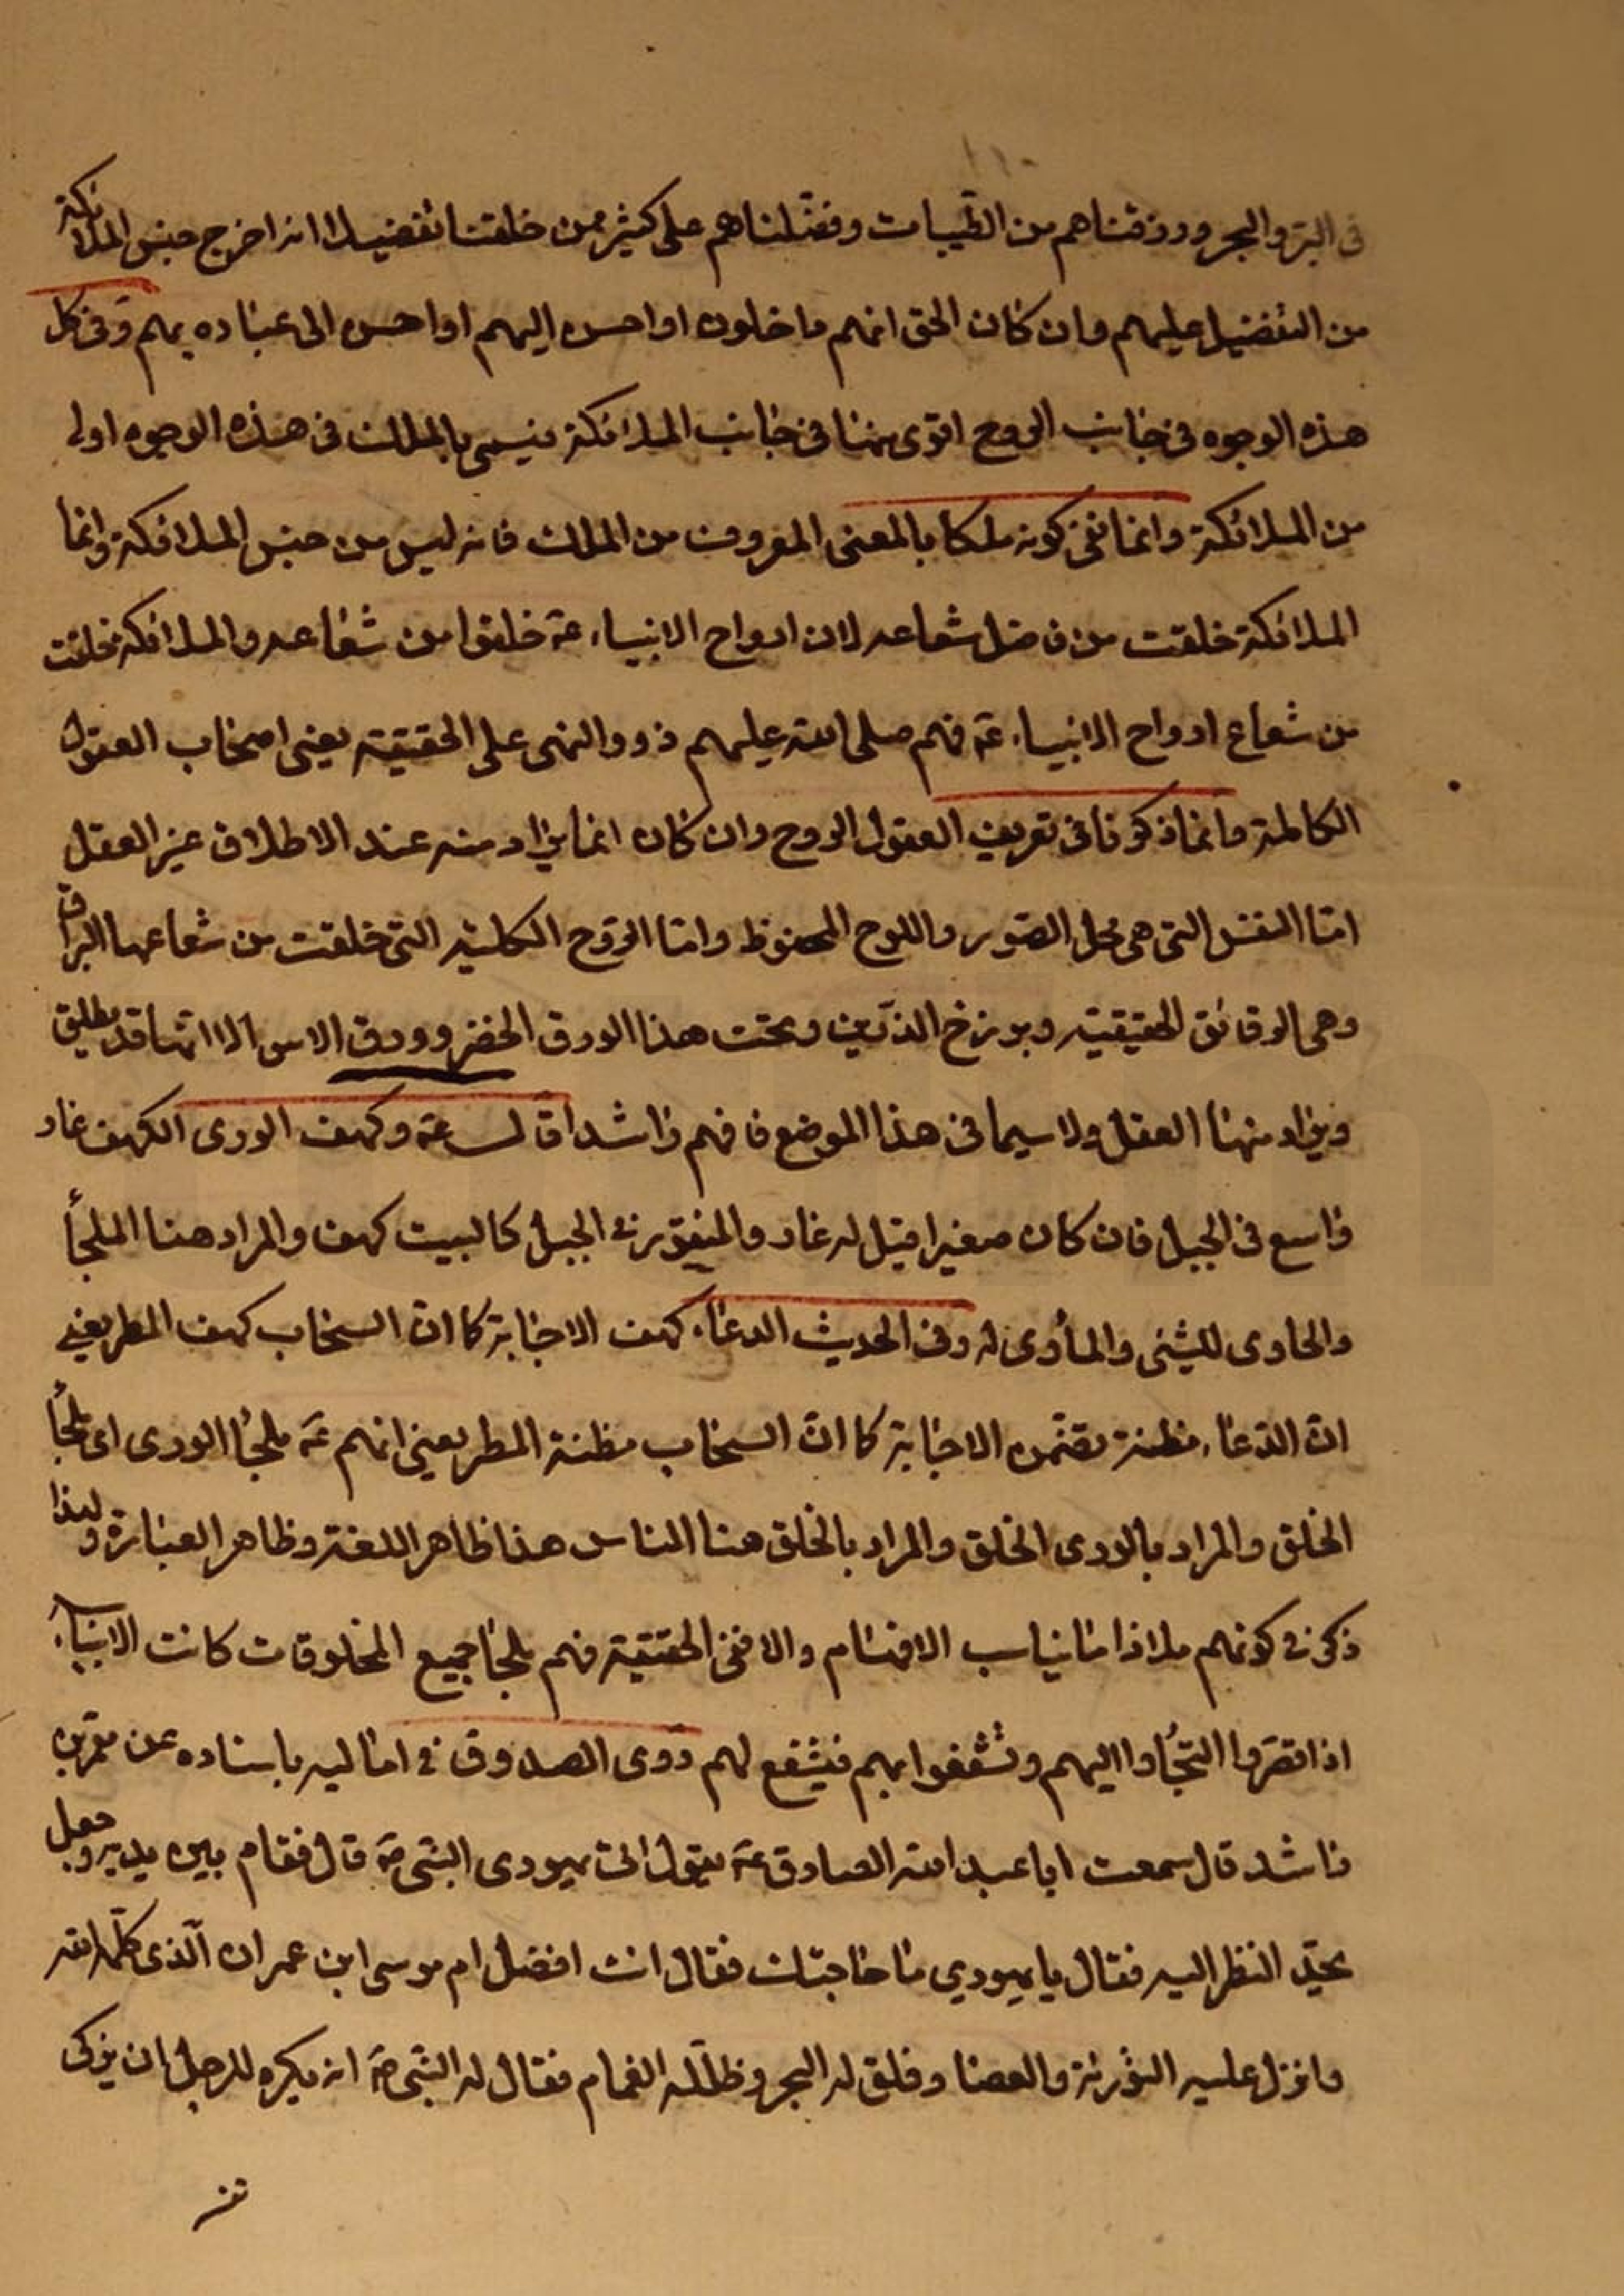 في البر والبحر ورزقناهم من الطيبات وفضلناهم على كثير ممن خلقنا تفضيلا انه اخرج جنس الملائكة
من التفضيل عليهم وان كان الحق انهم داخلون او احسن اليهم او احسن الى عباده بهم وفي كل
هذه الوجوه في جانب الروح اقوى منها في جانب الملائكة فيسمى بالملك في هذه الوجوه اولى
من الملائكة وانما نفى كونه ملكا بالمعنى المعروف من الملك فانه ليس من جنس الملائكة وانما
الملائكة خلقت من فاضل شعاعه لان ارواح الانبياء ع خلقوا من شعاعه والملائكة خلقت
من شعاع ارواح الانبياء ع فهم صلى الله عليهم ذوو النهى على الحقيقة يعنى اصحاب العقول
الكاملة وانما ذكرنا في تعريف العقول الروح وان كان انما يراد منه عند الاطلاق غير العقل
امّا النفس التى هى محل الصّور واللوح المحفوظ وامّا الرّوح الكلّية التى خلقت من شعاعها البراق
وهى الرقائق الحقيقية وبرزخ البرزخين وتحت هذا الورق الخضر وورق الاس الا انّها قد يطلق
ويراد منها العقل ولا سيما في هذا الموضع فافهم راشدا قال ع وكهف الورى الكهف غار
واسع في الجبل فان كان صغيرا قيل له غار والمنقور في الجبل كالبيت كهف والمراد هنا الملجأ
والحاوى للشئ والمأوى له وفي الحديث الدعاء كهف الاجابة كما انّ السحاب كهف المطر يعني
انّ الدّعاء مظنة تضمّن الاجابة كما انّ السحاب مظنة المطر يعني انهم ع ملجأ الورى اى ملجأ
الخلق والمراد بالورى الخلق والمراد بالخلق هنا الناس هذا ظاهر اللغة وظاهر العبارة ولهذا
ذكر في كونهم ملاذا ما يناسب الافهام والا ففي الحقيقة فهم ملجأ جميع المخلوقات كانت الانبياء
اذا التجأوا اليهم وتشفعوا بهم فيشفع لهم روى الصدوق في اماليه باسناده عن معمّر بن
راشد قال سمعت ابا عبد الله الصادق ع يقول اتى يهودى النّبي ص قال فقام بين يديه وجعل
يحدّ النظر اليه فقال يا يهودي ما حاجتك فقال انت افضل ام موسى ابن عمران الّذى كلّمه الله
وانزل عليه التورية والعصا وفلق له البحر وظلّله الغمام فقال له النّبي ص انه يكره للرجل ان يزكى